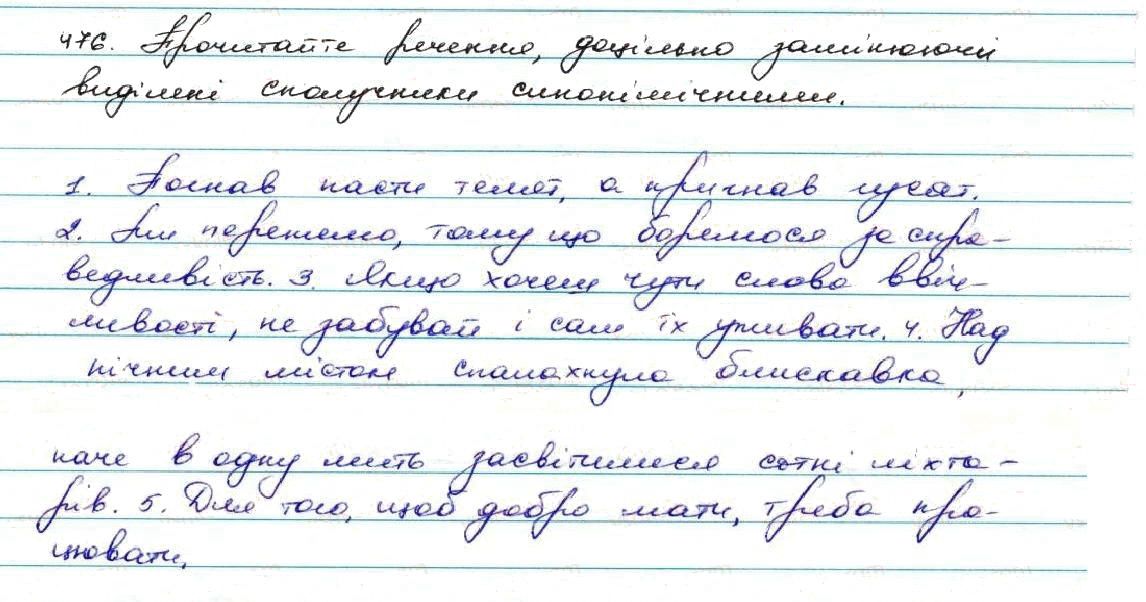 476. Прочитайте речення, доцільно замінюючи
виділені сполучники синонімічними.
1. Погнав пасти телят, а пригнав гусят.
2. Ми переможемо, тому що боремося за спра-
ведливість. 3. Якщо хочеш чути слова ввіч-
ливості, не забувай і сам їх уживати. 4. Над
нічним містом спалахнула блискавка,
наче в одну мить засвітилися сотні ліхта-
рів. 5. Для того, щоб добро мати, треба пра-
цювати.